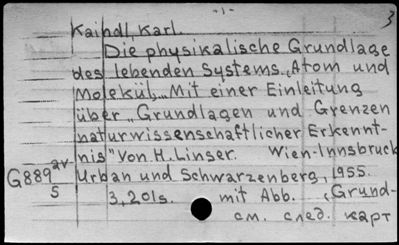 -1-
3
Kaindl, Karl.
Die physikalische Grundlage
des lebenden Systems. „Atom und
Molekül„... Mit einer Einleitung
über „Grundlagen und Grenzen
naturwissenschaftlicher Erkennt-
nis" von H. Linser. Wien-Innsbruck
Urban und Schwarzenberg, 1955.
G889 av
5
3,201s. mit Abb. (Grund-
см. след. карт